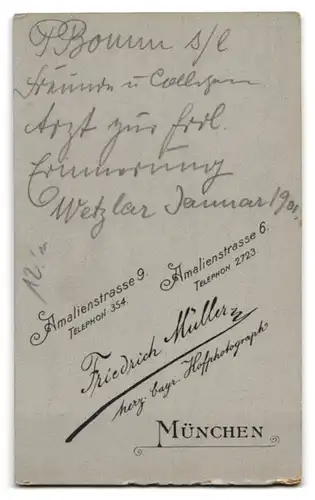 P Bomm s/l
Freunde u Collegen
Arzt zur frdl.
Erinnerung
Wetzlar Januar 1901.
12.-
Amalienstrasse 9.
Telephon 354.
Amalienstrasse 6.
Telephon 2723.
Friedrich Müller
herz. bayr. Hofphotograph
München